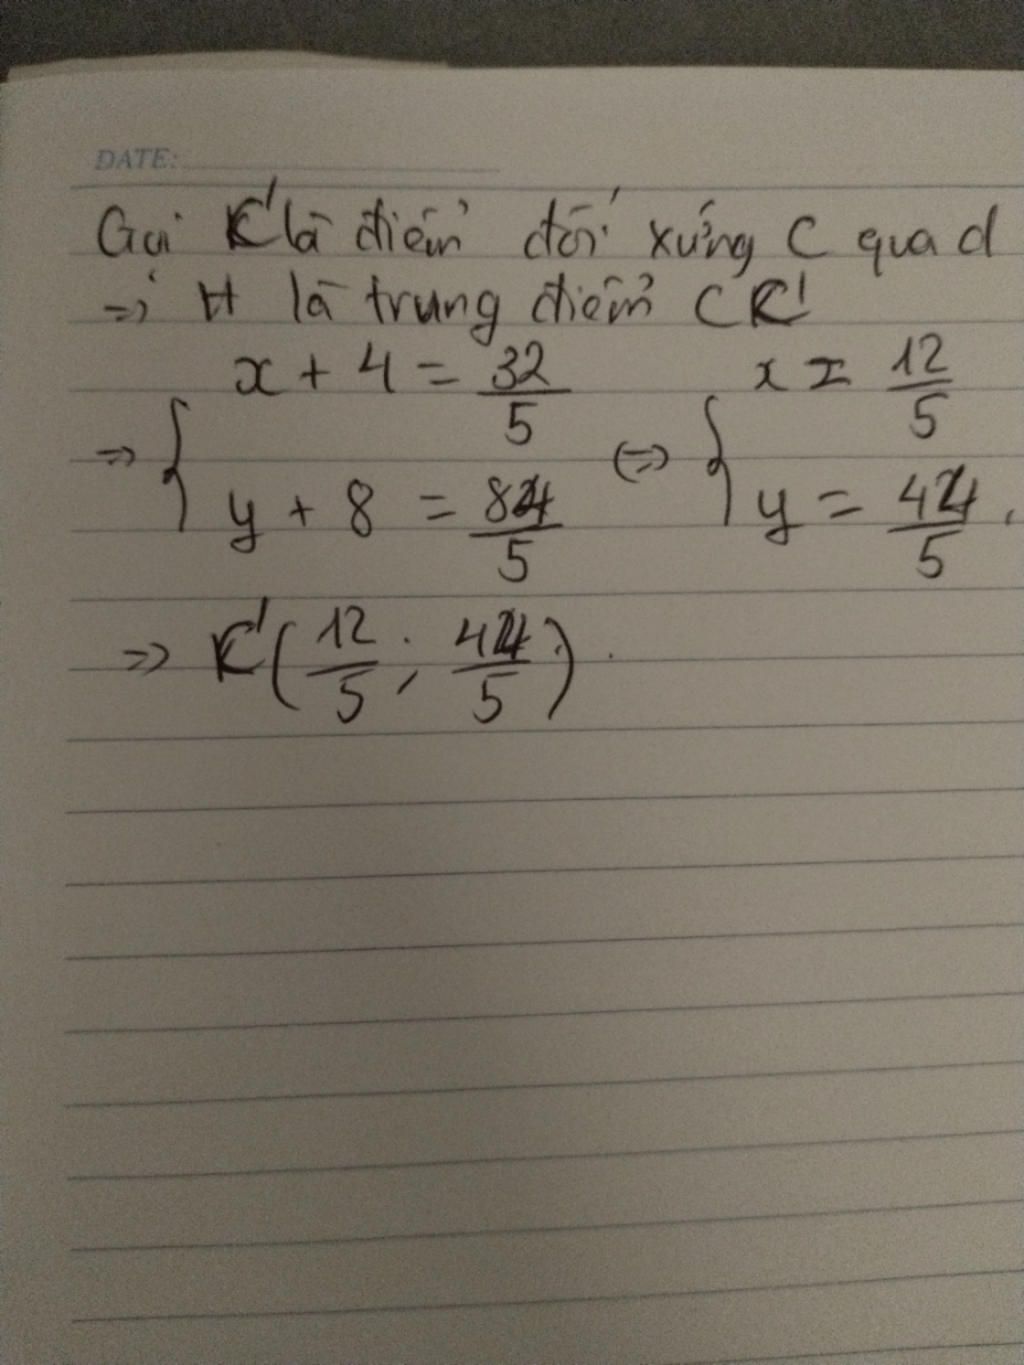 DATE:
Gọi K' là điểm đối xứng C qua d
=> H là trung điểm CK'
x + 4 = 32/5 x = 12/5
=> { (=>) {
y + 8 = 84/5 y = 44/5 .
=> K' ( 12/5 ; 44/5 ) .